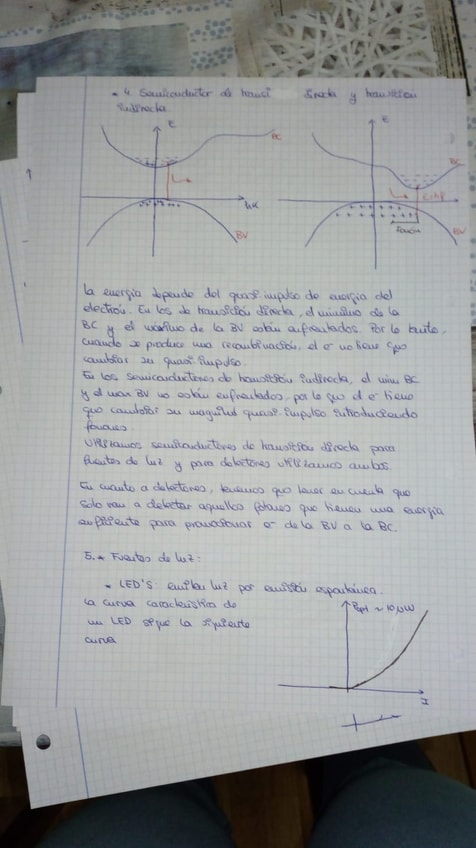 * 4. Semiconductor de transi directa y transición
indirecta
E
BC
ħK
BV
E
BC
e-hf
fonón
BV
La energía depende del quasi-impulso de energía del
electrón. En los de transición directa, el mínimo de la
BC y el máximo de la BV están enfrentados. Por lo tanto,
cuando se produce una recombinación, el e⁻ no tiene que
cambiar su quasi-impulso.
En los semiconductores de transición indirecta, el min BC
y el max BV no están enfrentados, por lo que el e⁻ tiene
que cambiar su magnitud quasi-impulso introduciendo
fonones.
Utilizamos semiconductores de transición directa para
fuentes de luz y para detectores utilizamos ambos.
En cuanto a detectores, tenemos que tener en cuenta que
solo van a detectar aquellos fotones que tienen una energía
suficiente para promocionar e⁻ de la BV a la BC.
5. * Fuentes de luz:
* LED'S: emiten luz por emisión espontánea.
La curva característica de
un LED sigue la siguiente
curva
Popt ~ 10 μW
I